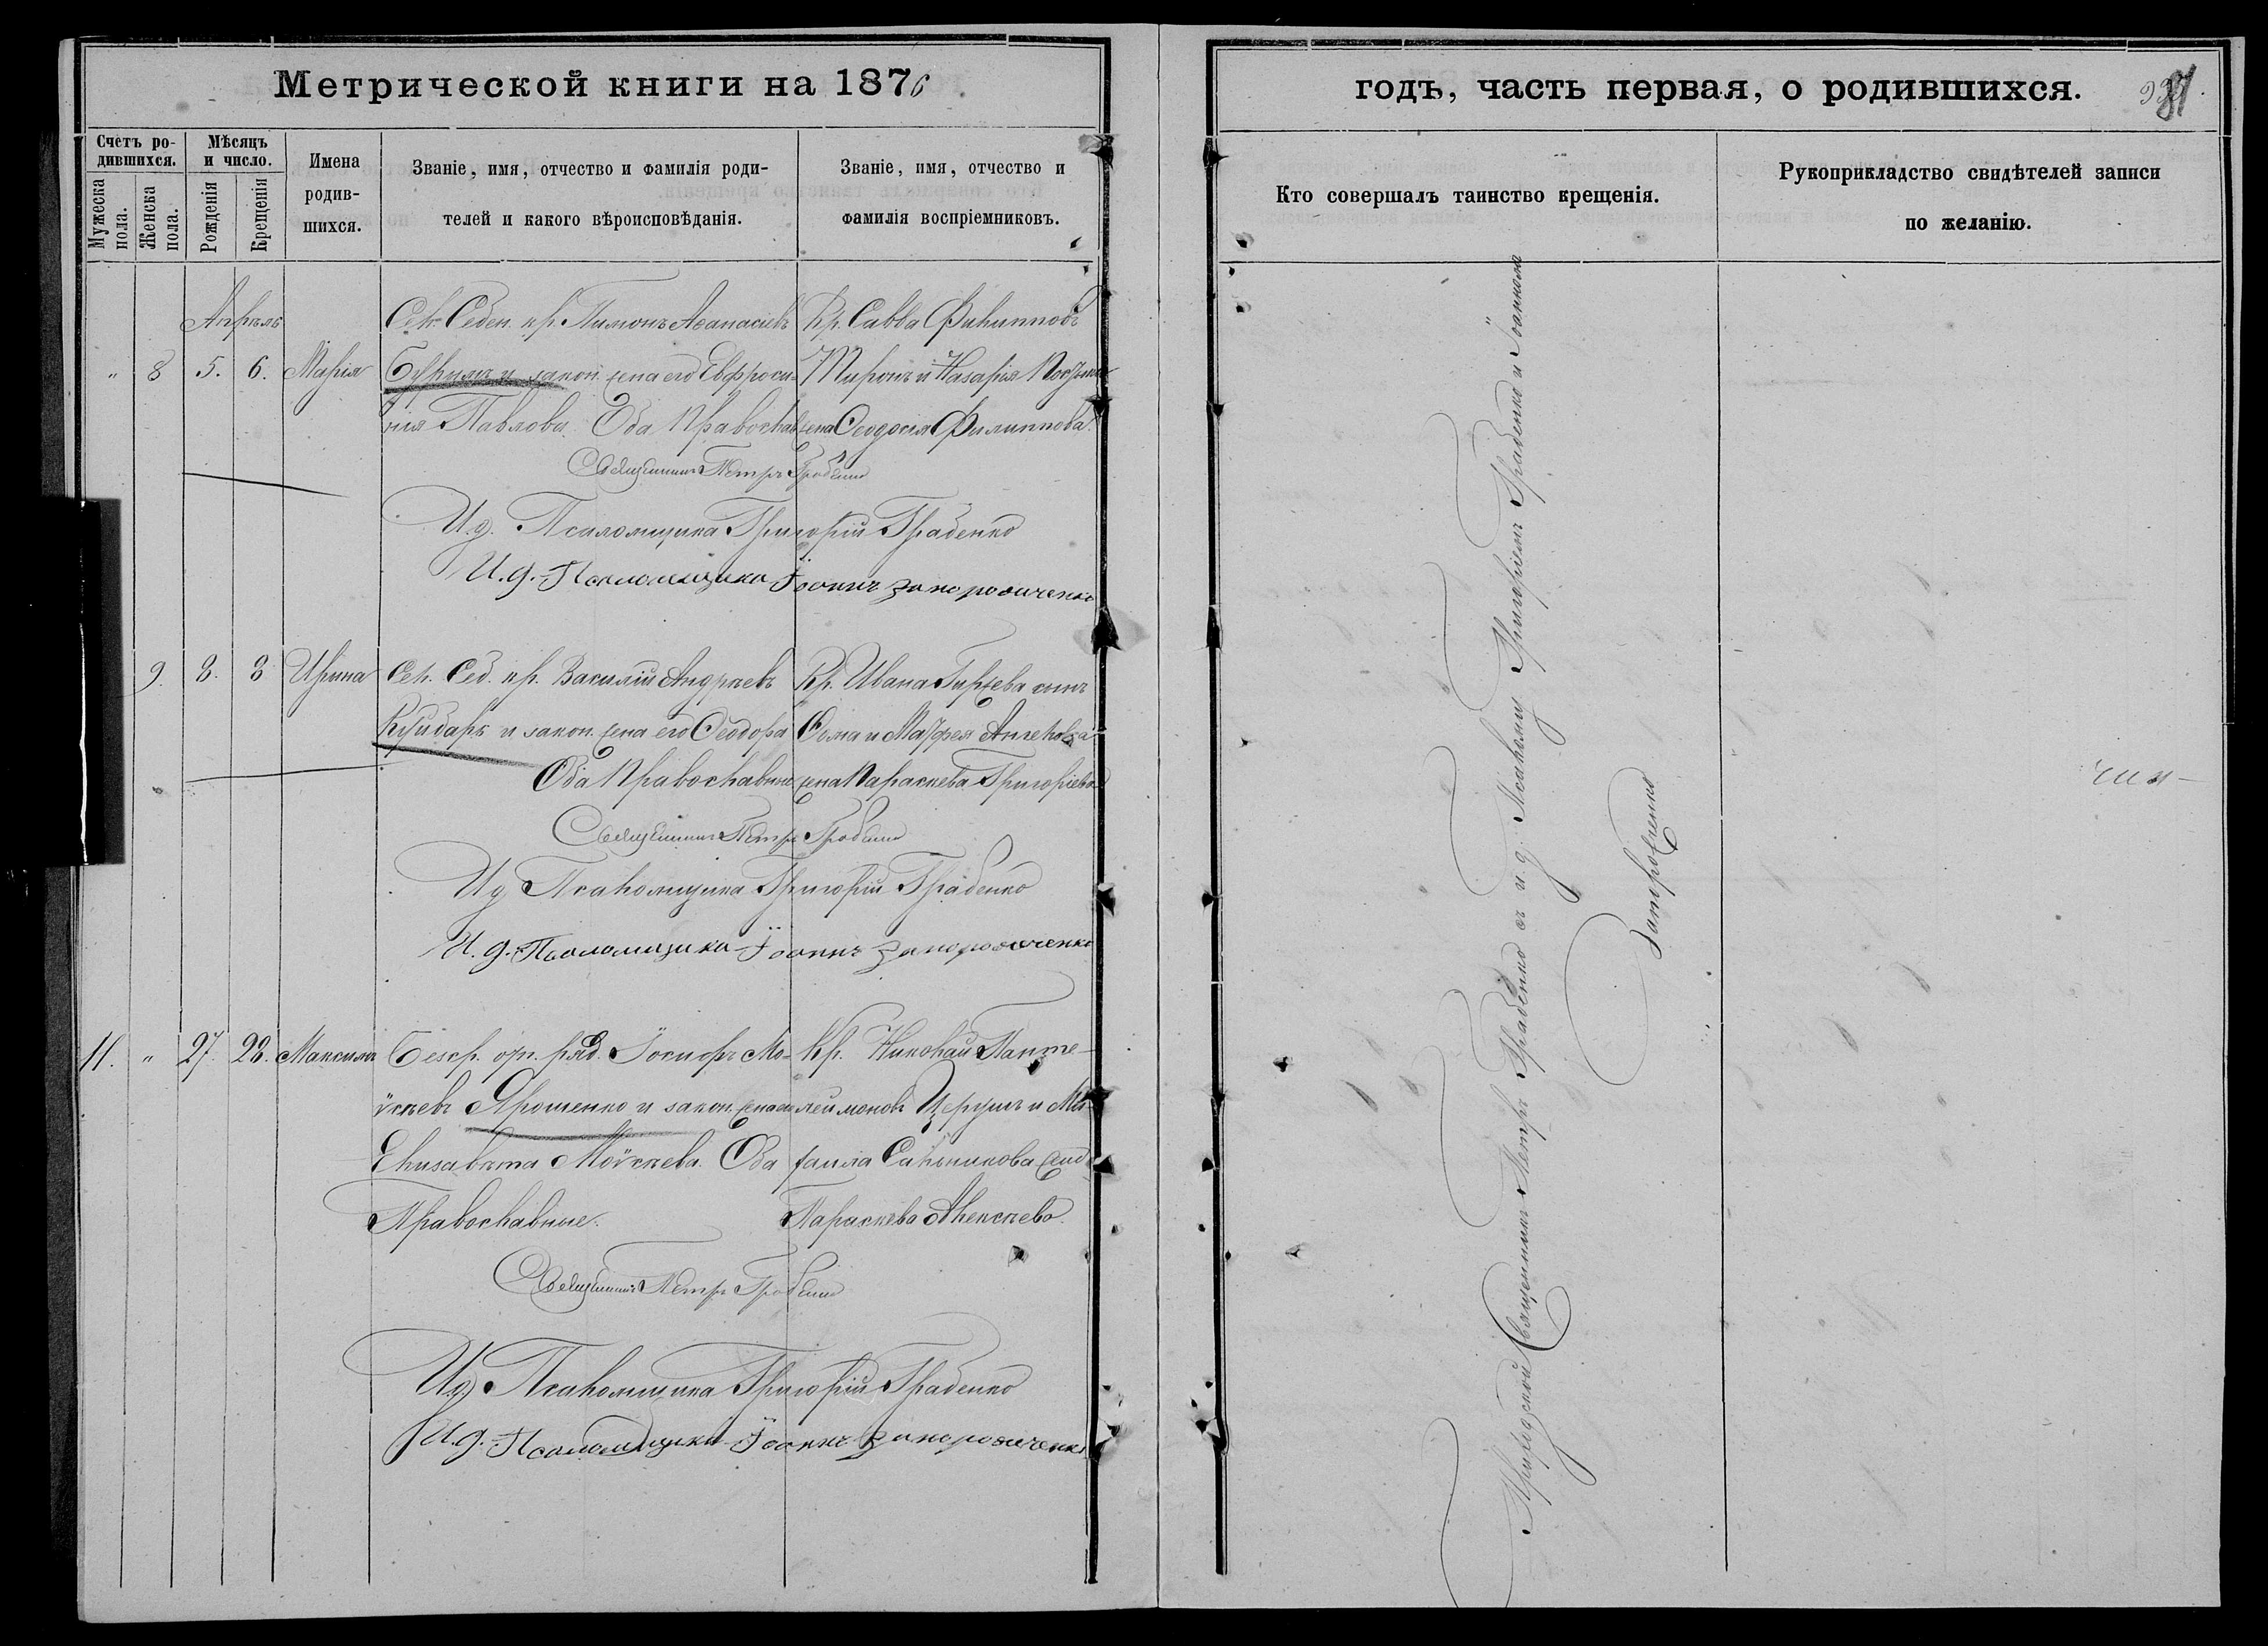 Метрической книги на 1876
годъ, часть первая, о родившихся.
Счетъ ро-
дившихся.
Мужеска
пола.
Женска
пола.
Мѣсяцъ
и число.
Рожденія
Крещенія
Имена
родив-
шихся.
Званіе, имя, отчество и фамилія роди-
телей и какого вѣроисповѣданія.
Званіе, имя, отчество и
фамилія воспріемниковъ.
Кто совершалъ таинство крещенія.
Рукоприкладство свидѣтелей записи
по желанію.
Апрѣль
" 8 5. 6. Марія
Сел. Седен. кр. Пимонъ Аѳанасіевъ
и закон. жена его Евфроси-
нія Павлова. Оба Православ
Кр. Савва Филипповъ
и Назарія
жена Ѳеодосія Филиппова.
Священникъ Петръ Грабенко
И. д. Псаломщика Григорій Грабенко
И. д. Псаломщика Іоаннъ Запорожченко
9. 8. 8 Ирина
Сел. Сед. кр. Василій Андреевъ
и закон. жена его Ѳеодора
Оба Православные
Кр. Ивана сынъ
Ѳома и
жена Параскева Григоріева
Священникъ Петръ Грабенко
И д Псаломщика Григорій Грабенко
И. д. Псаломщика Іоаннъ Запорожченко
11. " 27. 28. Максимъ
Безср. отп. ряд. Іосифъ Мо-
ѵсѣевъ Ярошенко и закон. жена его
Елизавета Моѵсѣева. Оба
Православные.
Кр. Николай Панте-
леимоновъ и Ми-
хаила жена
Параскева Алексѣева.
Священникъ Петръ Грабенко
И д Псаломщика Григорій Грабенко
И. д. Псаломщика Іоаннъ Запорожченко
Приходской Священникъ Петръ Грабенко съ и. д. Псаломщ. Григоріемъ Грабенко и Іоанномъ
Запорожченко